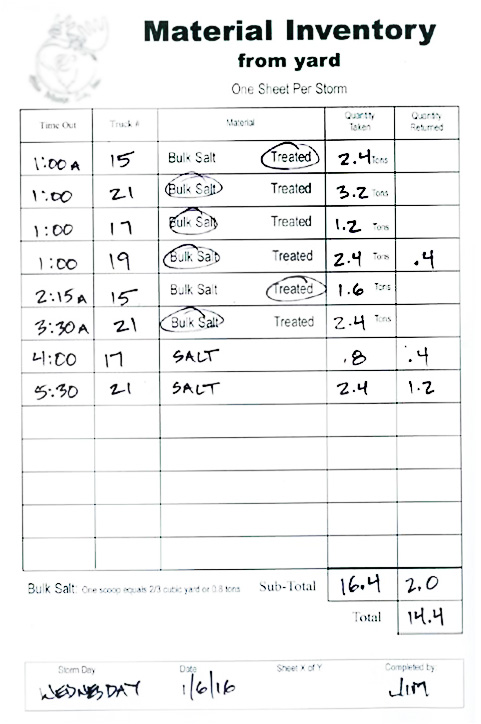 Material Inventory
from yard
One Sheet Per Storm
Time Out Truck # Material Quantity Taken Quantity Returned
1:00 A 15 Bulk Salt Treated 2.4 Tons
1:00 21 Bulk Salt Treated 3.2 Tons
1:00 17 Bulk Salt Treated 1.2 Tons
1:00 19 Bulk Salt Treated 2.4 Tons .4
2:15 A 15 Bulk Salt Treated 1.6 Tons
3:30 A 21 Bulk Salt Treated 2.4 Tons
4:00 17 SALT .8 .4
5:30 21 SALT 2.4 1.2
Bulk Salt: One scoop equals 2/3 cubic yard or 0.8 tons Sub-Total 16.4 2.0
Total 14.4
Storm Day Date Sheet X of Y Completed by
WEDNESDAY 1/6/16 JIM